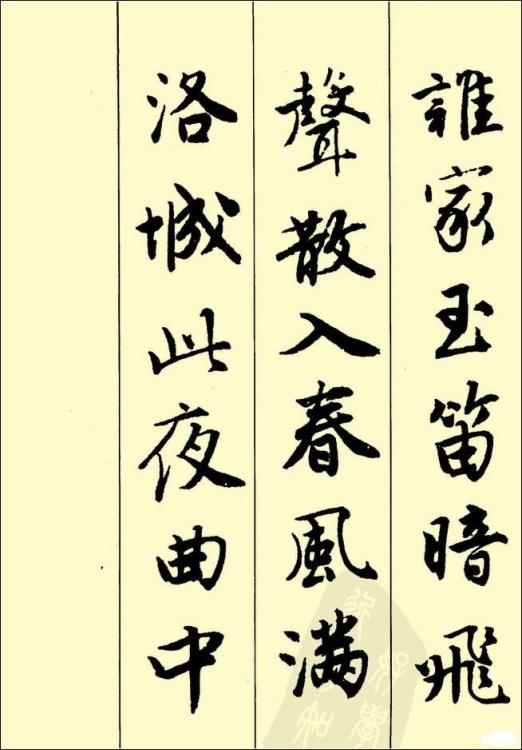 誰家玉笛暗飛
聲散入春風满
洛城此夜曲中